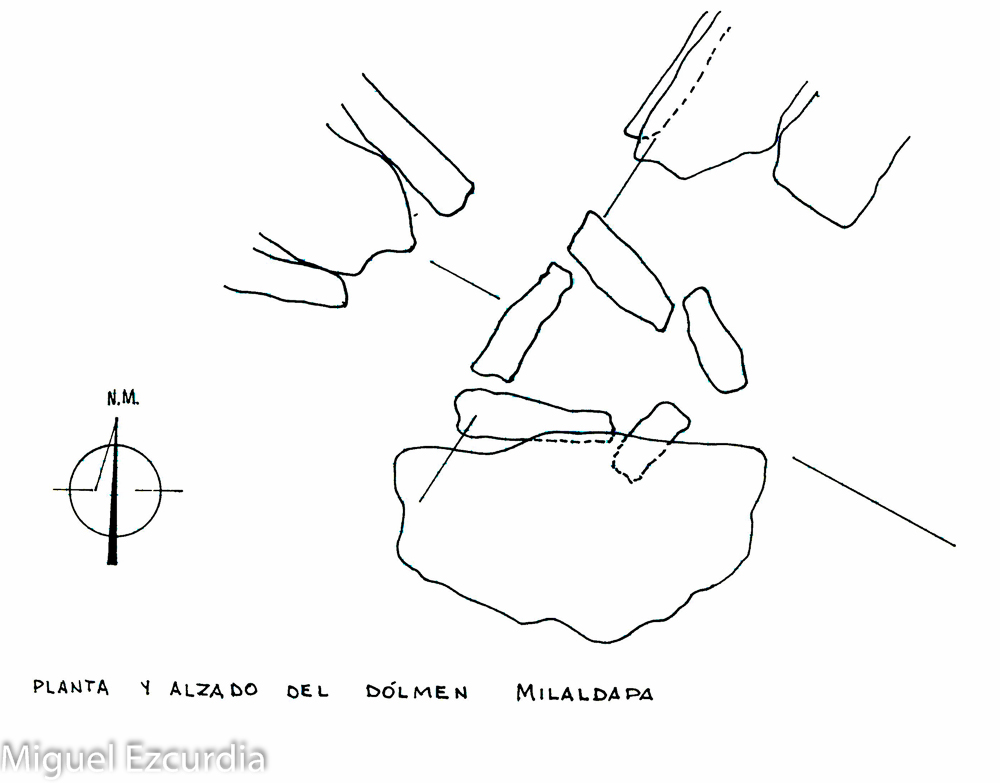 N.M.
PLANTA Y ALZADO DEL DÓLMEN MILALDAPA
Miguel Ezcurdia